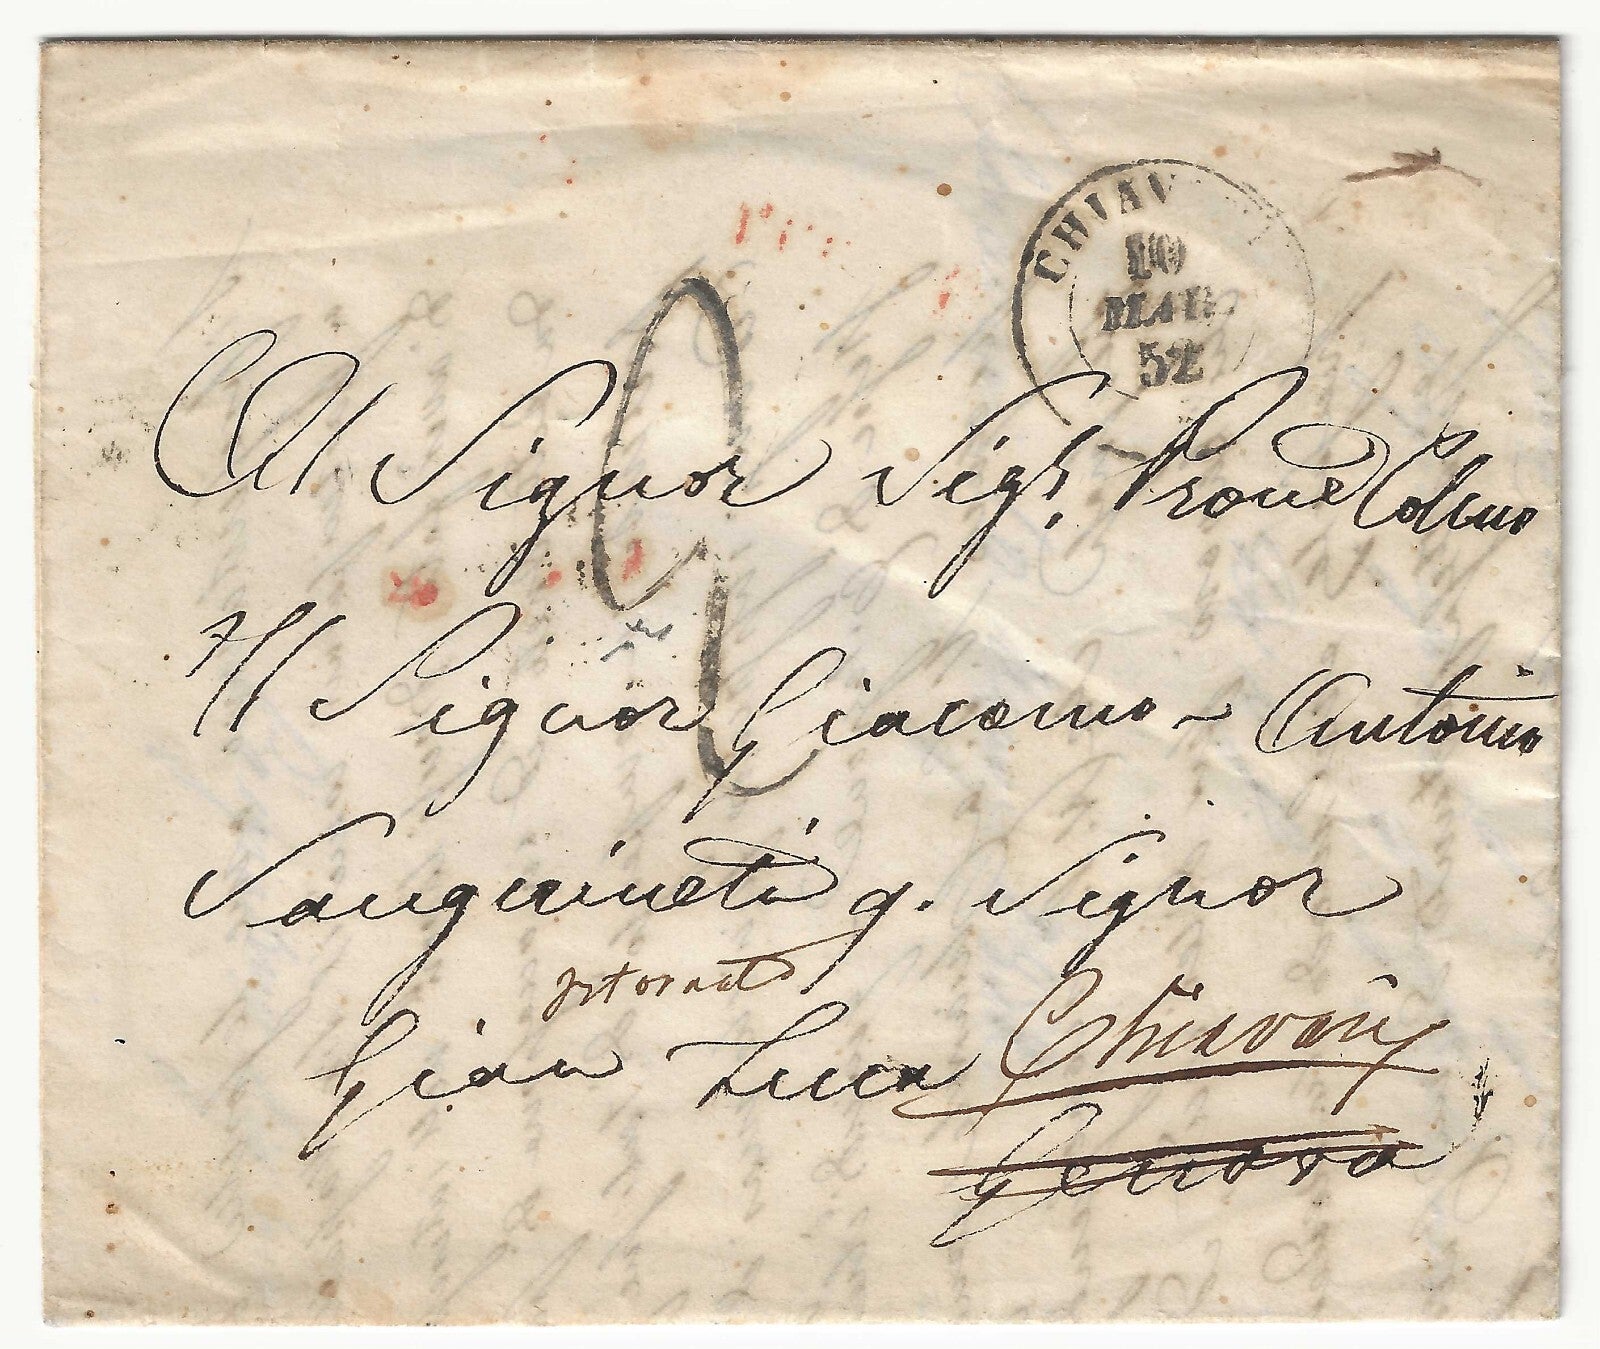 CHIAV
10
MAR
52
Al Signor Sigr. Prone Colmo
Il Signor Giacomo - Antonio
Sanguineti q. Signor
ritornata
Gian Luca Chiavari
Genova